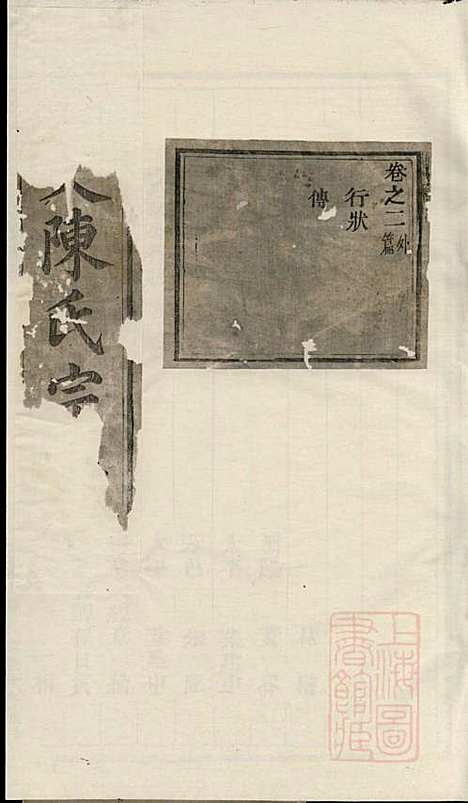 卷之二外篇
行狀
傳
陳氏宗
上海圖
書館藏